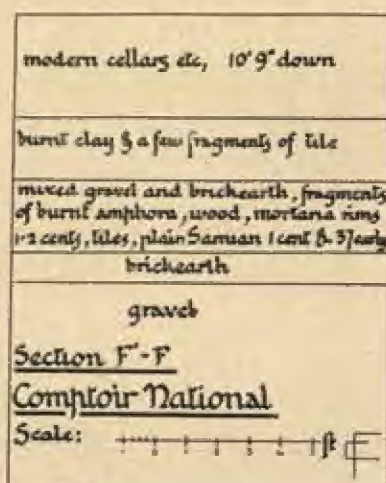 modern cellars etc, 10' 9" down
burnt clay & a few fragments of tile
mixed gravel and brickearth, fragments
of burnt amphora, wood, mortaria rims
1-2 cents, tiles, plain Samian 1 cent & 37 early
brickearth
gravel
Section F'-F
Comptoir National
Scale:
ft